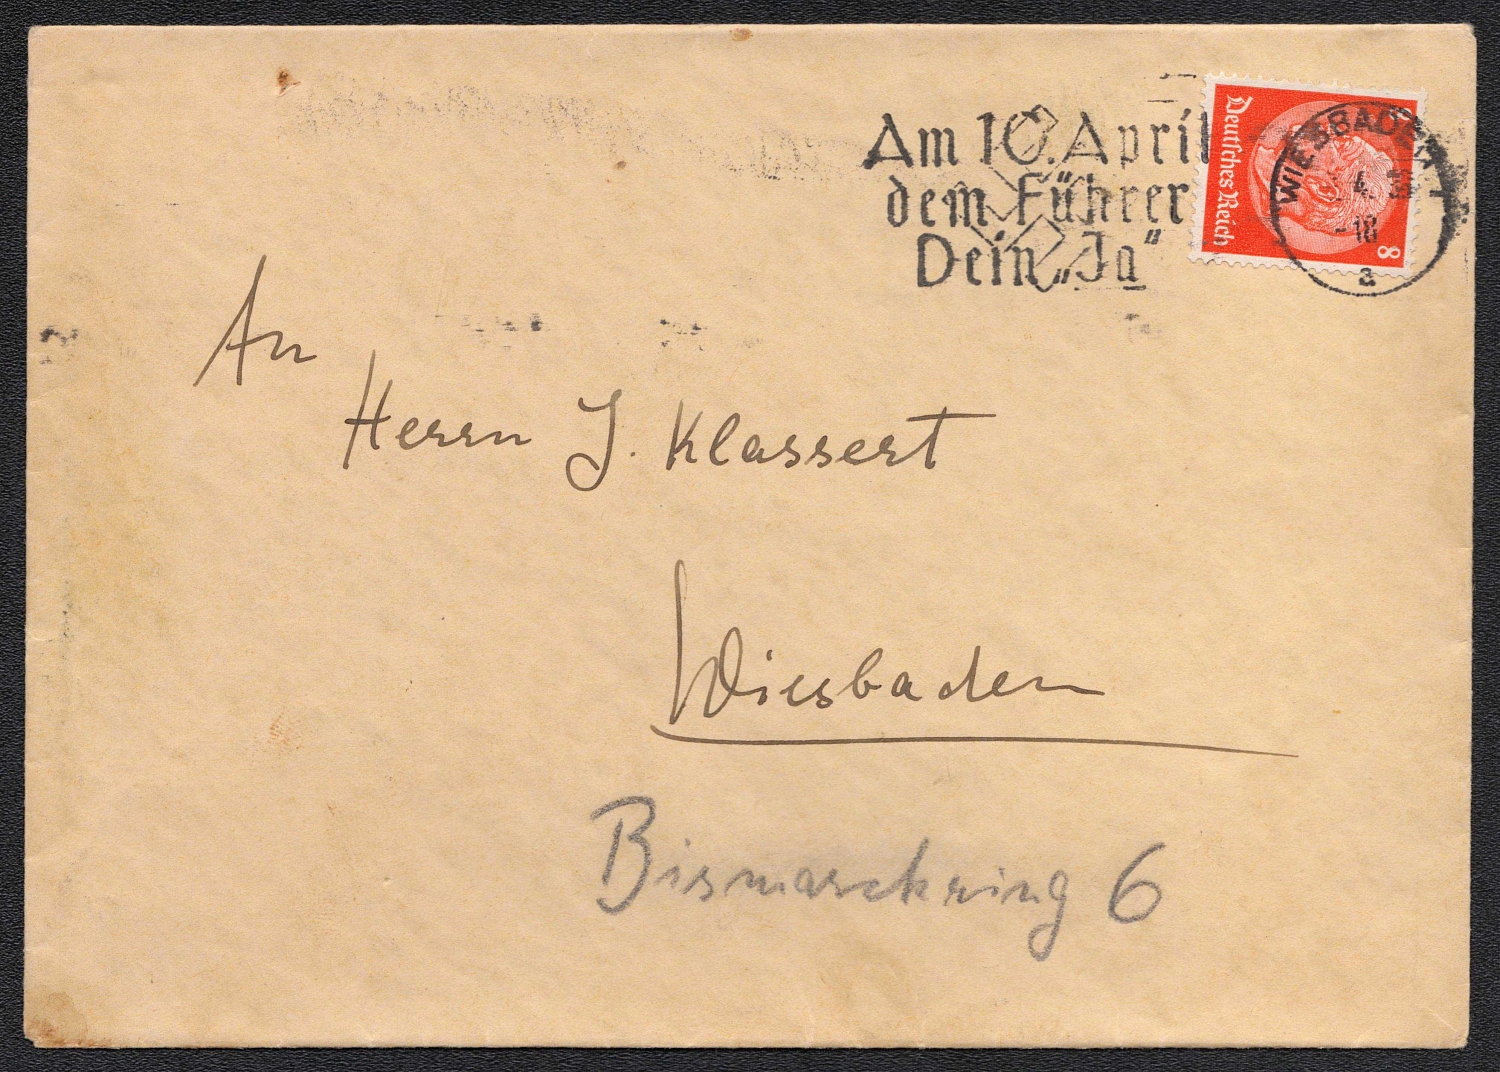 Am 10. April
dem Führer
Dein „Ja“
Deutsches Reich
8
WIESBADEN 1
4. 38
-18
a
An
Herrn J. Klassert
Wiesbaden
Bismarckring 6